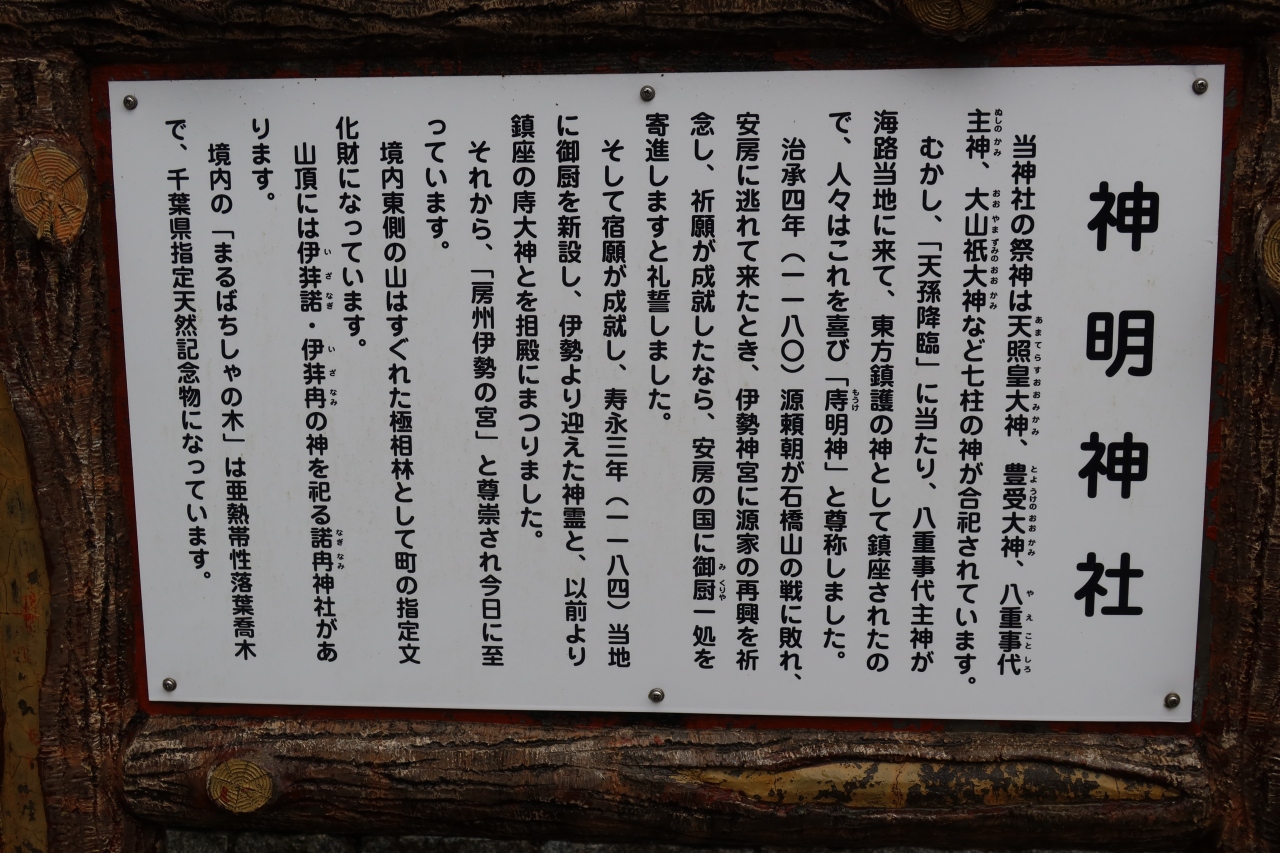 神明神社
当神社の祭神は天照皇大神、豊受大神、八重事代
主神、大山祇大神など七柱の神が合祀されています。
むかし、「天孫降臨」に当たり、八重事代主神が
海路当地に来て、東方鎮護の神として鎮座されたの
で、人々はこれを喜び「庤明神」と尊称しました。
治承四年（一一八〇）源頼朝が石橋山の戦に敗れ、
安房に逃れて来たとき、伊勢神宮に源家の再興を祈
念し、祈願が成就したなら、安房の国に御厨一処を
寄進しますと礼誓しました。
そして宿願が成就し、寿永三年（一一八四）当地
に御厨を新設し、伊勢より迎えた神霊と、以前より
鎮座の庤大神とを抯殿にまつりました。
それから、「房州伊勢の宮」と尊崇され今日に至
っています。
境内東側の山はすぐれた極相林として町の指定文
化財になっています。
山頂には伊弉諾・伊弉冉の神を祀る諾冉神社があ
ります。
境内の「まるばちしゃの木」は亜熱帯性落葉喬木
で、千葉県指定天然記念物になっています。